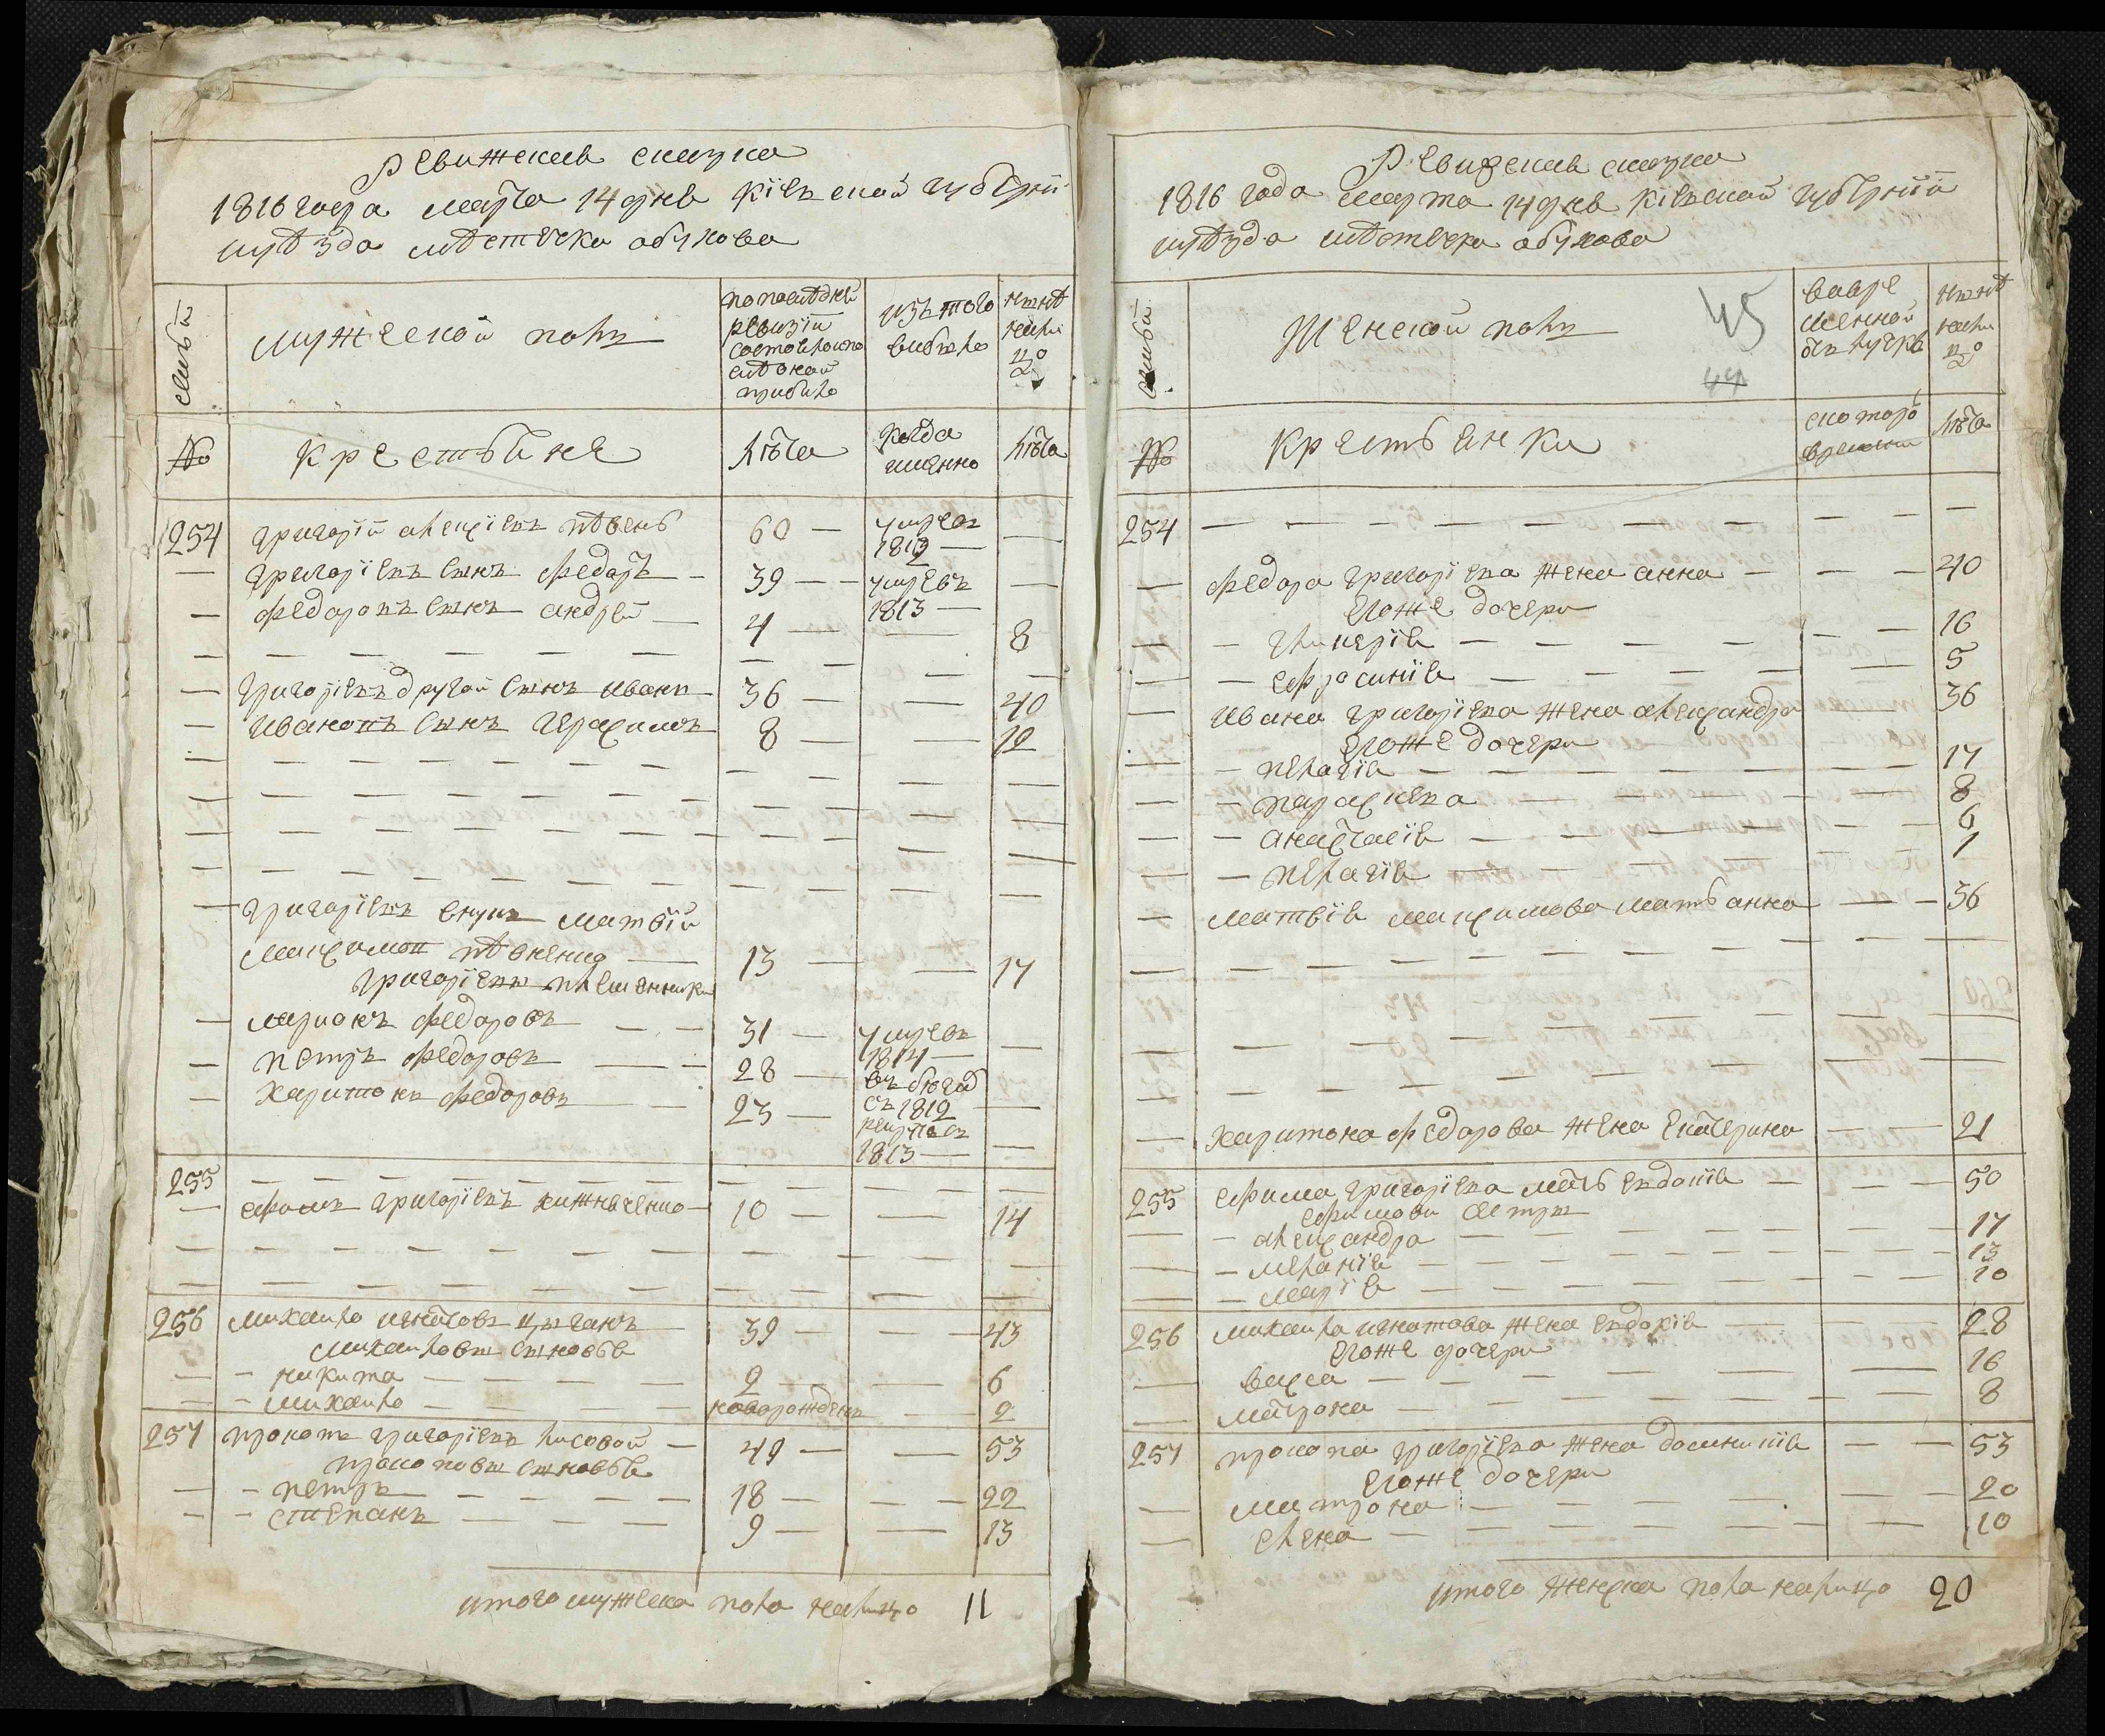 Ревижская сказка
1816 года марта 14 дня Кіевской губерніи
и уѣзда мѣстечка обухова
семьи
мужеской полъ
по последней ревизіи состояло и после оной прибыло
изъ того выбыло
нынѣ налицо
№
крестьяне
лѣта
когда именно
лѣта
254 григорій алексіевъ пѣвень 60 — умре въ 1812 —
— григоріевъ сынъ федоръ — 39 — — умре въ 1813 — —
— федоровъ сынъ андрей — 4 — — 8
— григоріевъ другой сынъ иванъ 36 — — 40
— ивановъ сынъ герасимъ 8 — — 12
— григоріевъ внукъ матвій
максимов пѣвненко — 13 — — 17
григоріевы племянники
— марионъ федоровъ — — 31 — умре въ 1814 — —
— петръ федоровъ — — 28 — въ бегах съ 1812 —
— харитонъ федоровъ — — 23 — рекрутъ съ 1813 — —
255 — — — — — —
— ефимъ григоріевъ хижняченко — 10 — — 14
256 михаило игнатовъ цыганъ — 39 — — 43
михаиловы сыновья
— — никита — — — — 2 — — 6
— — михаило — — — новорожденъ — 2
257 прокопъ григоріевъ лисовой — 49 — — 53
прокоповы сыновья
— — петръ — — — — 18 — — — 22
— — степанъ — — — 9 — — 13
итого мужеска пола налицо 11
Ревизская сказка
1816 года марта 14 дня Кіевской губерніи
и уѣзда мѣстечка обухова
семьи
женской полъ
45
44
во временной отлучкѣ
нынѣ налицо
№
крестьянки
с которого времени
лѣта
254 — — — — — — — — — —
— федора григоріева жена анна — — — 40
егоже дочери
— — гликерія — — — — — — 16
— — ефросинія — — — — — 5
— ивана григоріева жена александра 36
егоже дочери
— — пелагія — — — — — — 17
— — параскева — — — — 8
— — анастасія — — — — — 6
— — пелагія — — — — 1
— матвія максимова мать анна — — 36
— харитона федорова жена екатерина — — 21
255 ефима григоріева мать евдокія — — — 50
ефимови сестры
— — александра — — — — — 17
— — меланія — — — — — 13
— — марія — — — — — 10
256 михаила игнатова жена евдокія — — 28
егоже дочери
— васса — — — — — — 16
— матрона — — — — — — 8
257 прокопа григоріева жена доминикія — — 53
егоже дочери
— матрона — — — — — — 20
— елена — — — — — — 10
итого женска пола налицо 20